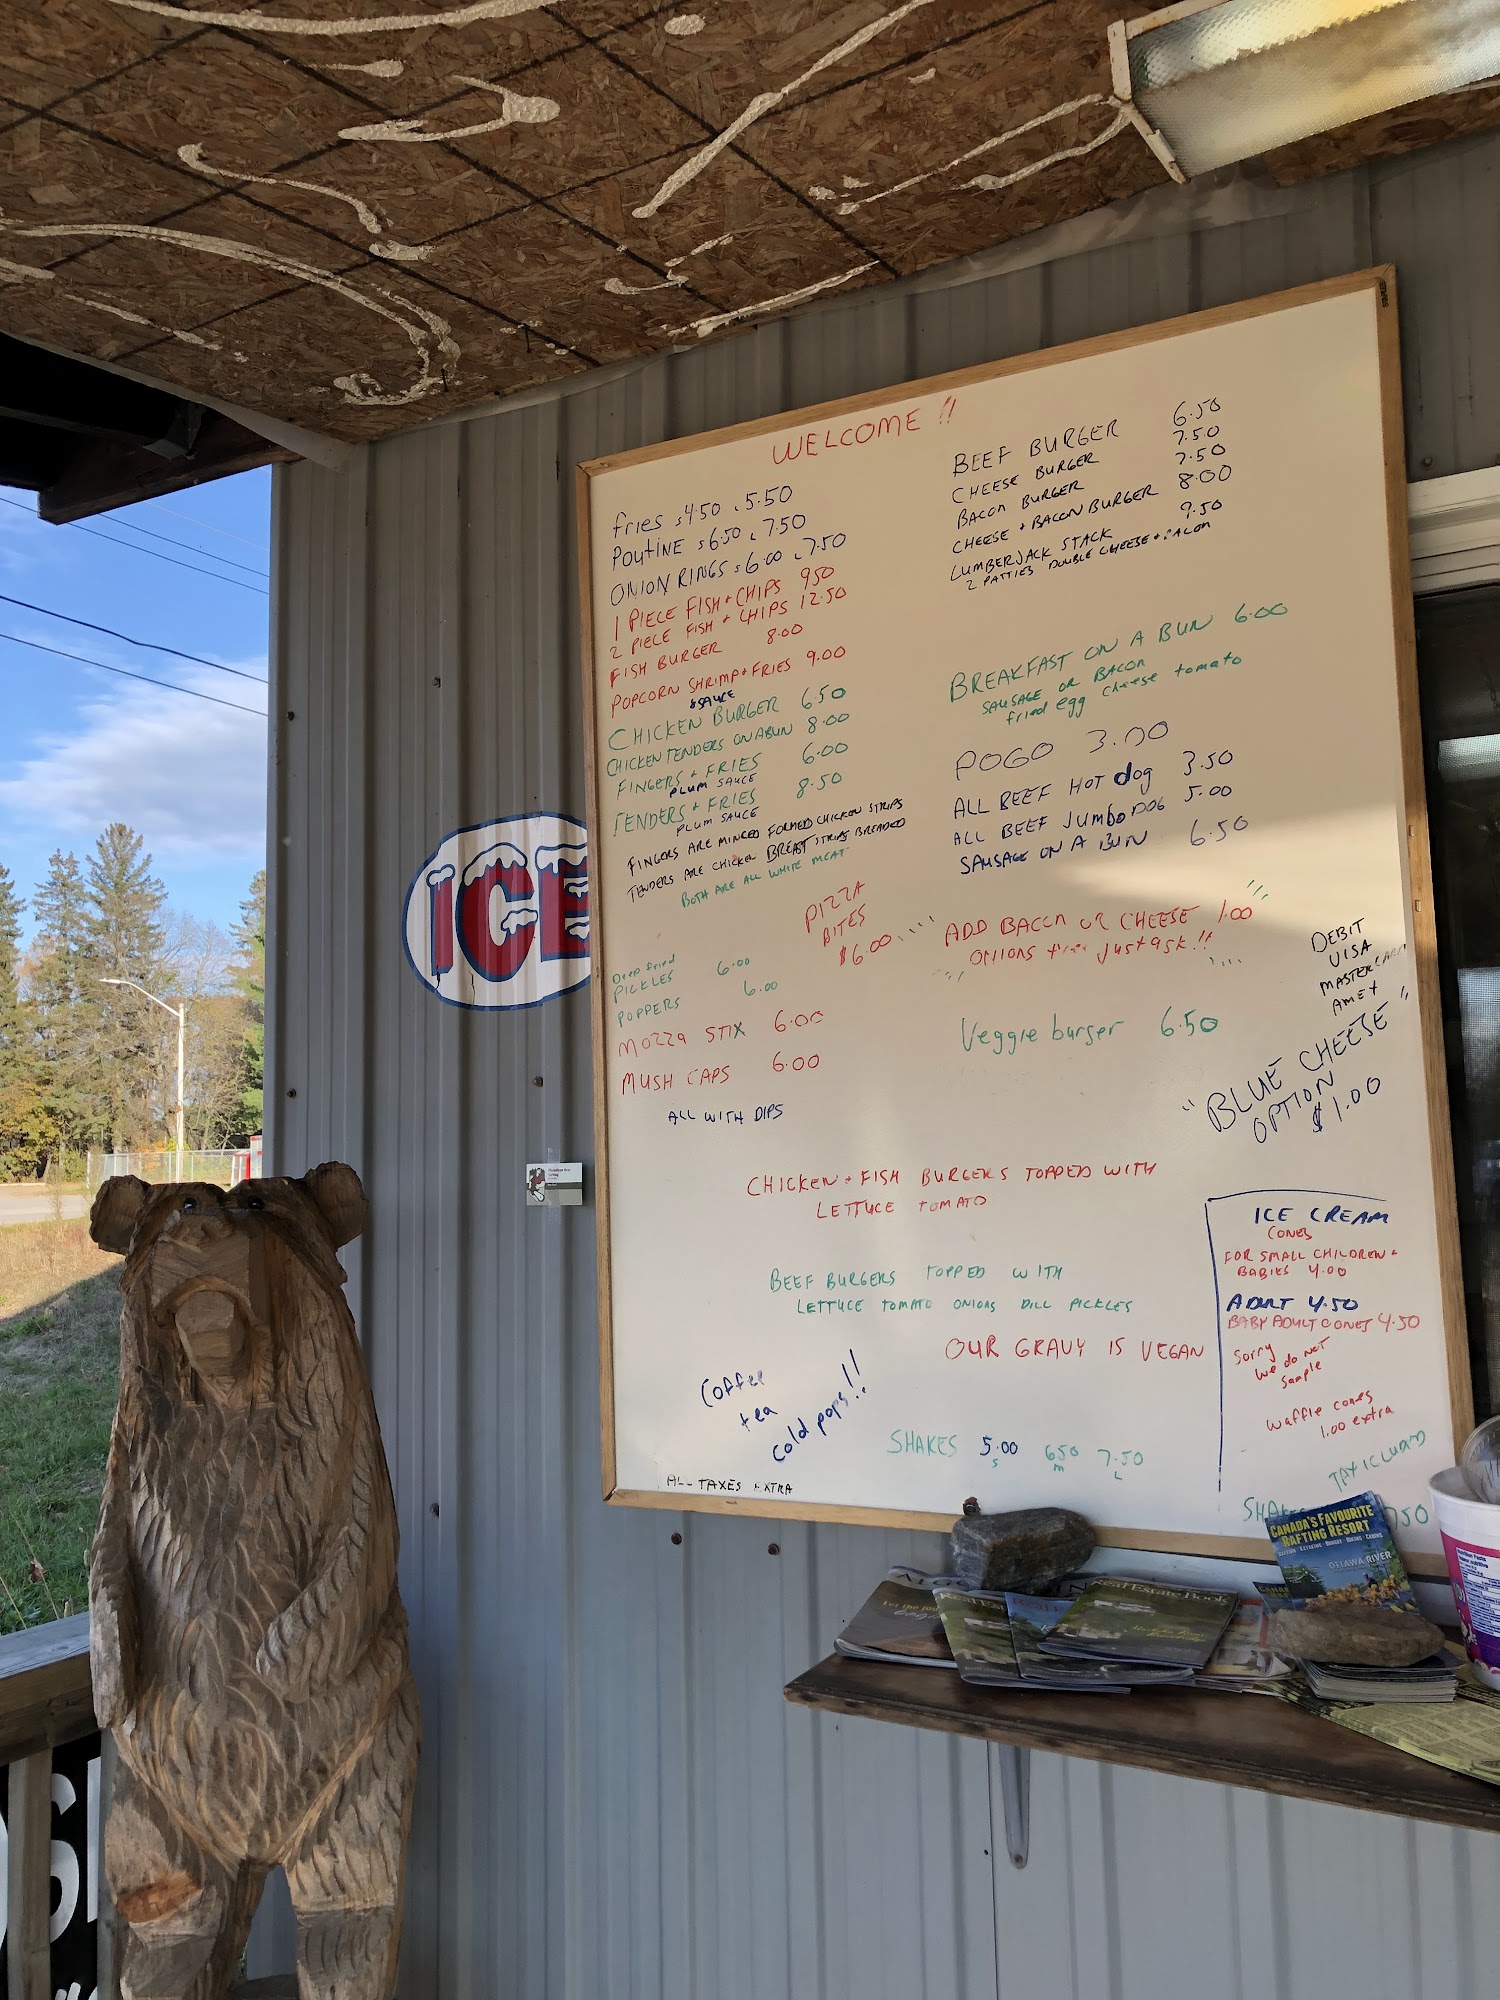 WELCOME !!
fries s 4.50 L 5.50
POUTINE s 6.50 L 7.50
ONION RINGS s 6.00 L 7.50
1 PIECE FISH + CHIPS 950
2 PIECE FISH + CHIPS 12.50
FISH BURGER 8.00
POPCORN SHRIMP + FRIES 9.00
& SAUCE
CHICKEN BURGER 6.50
CHICKEN TENDERS ON A BUN 8.00
FINGERS + FRIES 6.00
PLUM SAUCE
TENDERS + FRIES 8.50
PLUM SAUCE
FINGERS ARE MINCED FORMED CHICKEN STRIPS
TENDERS ARE CHICKEN BREAST STRIPS BREADED
BOTH ARE ALL WHITE MEAT
PIZZA
BITES
$6.00
Deep fried
PICKLES 6.00
POPPERS 6.00
MOZZA STIX 6.00
MUSH CAPS 6.00
ALL WITH DIPS
BEEF BURGER 6.50
CHEESE BURGER 7.50
BACON BURGER 7.50
CHEESE + BACON BURGER 8.00
LUMBERJACK STACK 9.50
2 PATTIES DOUBLE CHEESE + BACON
BREAKFAST ON A BUN 6.00
SAUSAGE OR BACON
fried egg cheese tomato
POGO 3.00
ALL BEEF HOT dog 3.50
ALL BEEF JUMBO DOG 5.00
SAUSAGE ON A BUN 6.50
ADD BACON OR CHEESE 1.00
ONIONS free just ask !!
DEBIT
VISA
MASTERCARD
AMEX
Veggie burger 6.50
"BLUE CHEESE"
OPTION
$1.00
CHICKEN + FISH BURGERS TOPPED WITH
LETTUCE TOMATO
BEEF BURGERS TOPPED WITH
LETTUCE TOMATO ONIONS DILL PICKLES
OUR GRAVY IS VEGAN
Coffee
tea
cold pops!!
SHAKES 5.00 650 7.50
s m L
ALL TAXES EXTRA
ICE CREAM
CONES
FOR SMALL CHILDREN +
BABIES 4.00
ADULT 4.50
BABY ADULT CONES 4.50
Sorry
we do NOT
sample
waffle cones
1.00 extra
TAX ICLUDED
SHAKES 750
ICE
CANADA'S FAVOURITE
RAFTING RESORT
OTTAWA RIVER
Real Estate Book